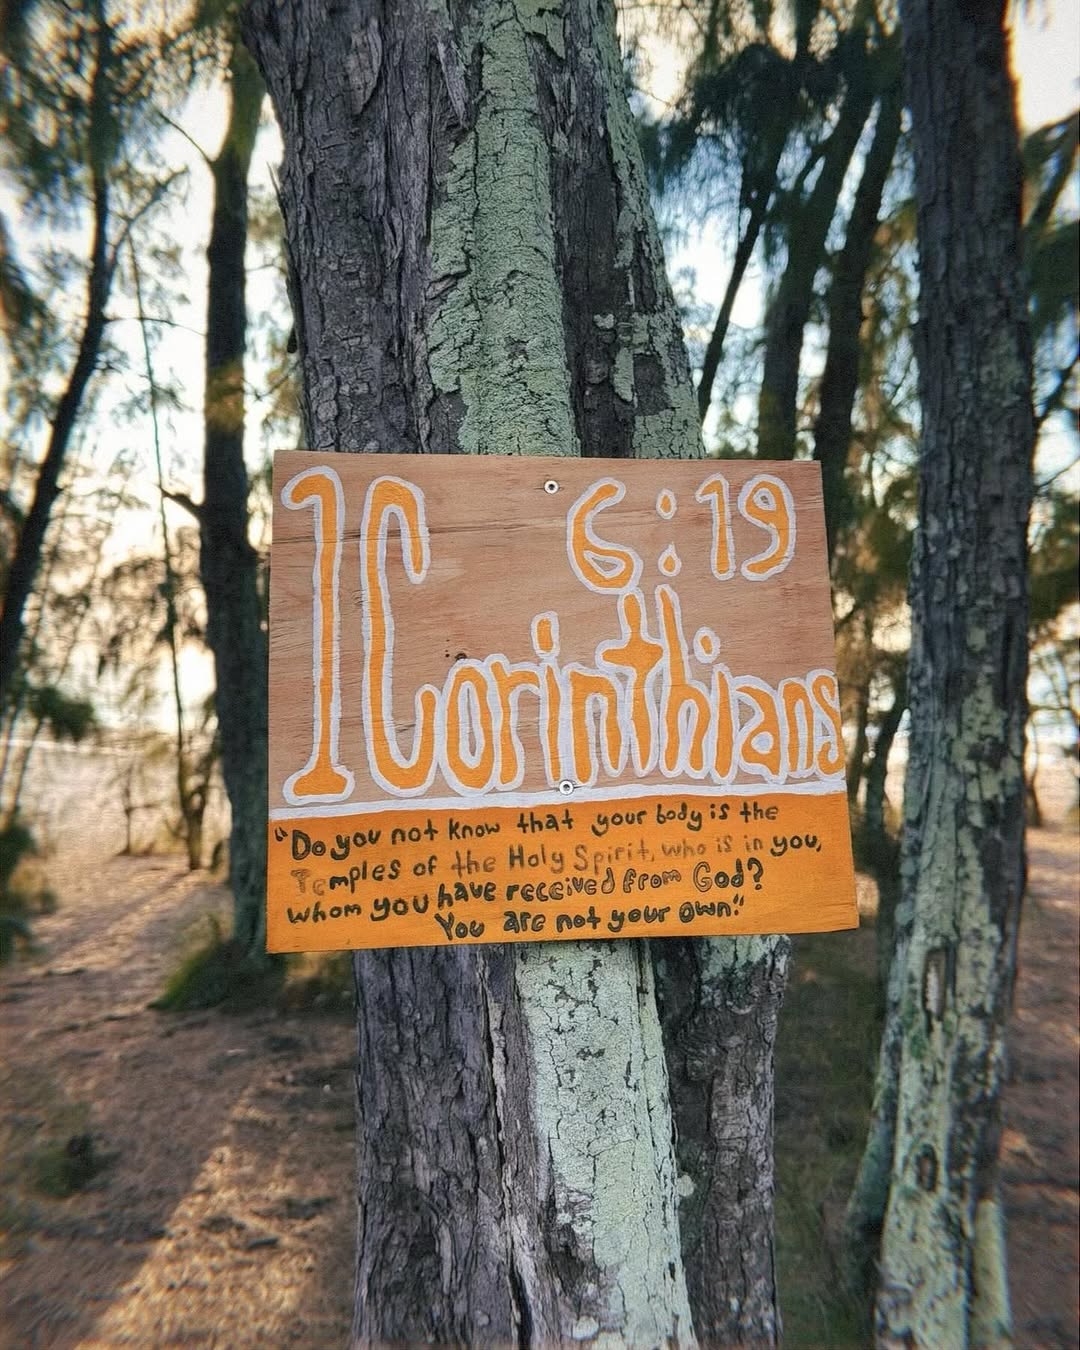 1 Corinthians 6:19
"Do you not know that your body is the
Temples of the Holy Spirit, who is in you,
whom you have received from God?
You are not your own."